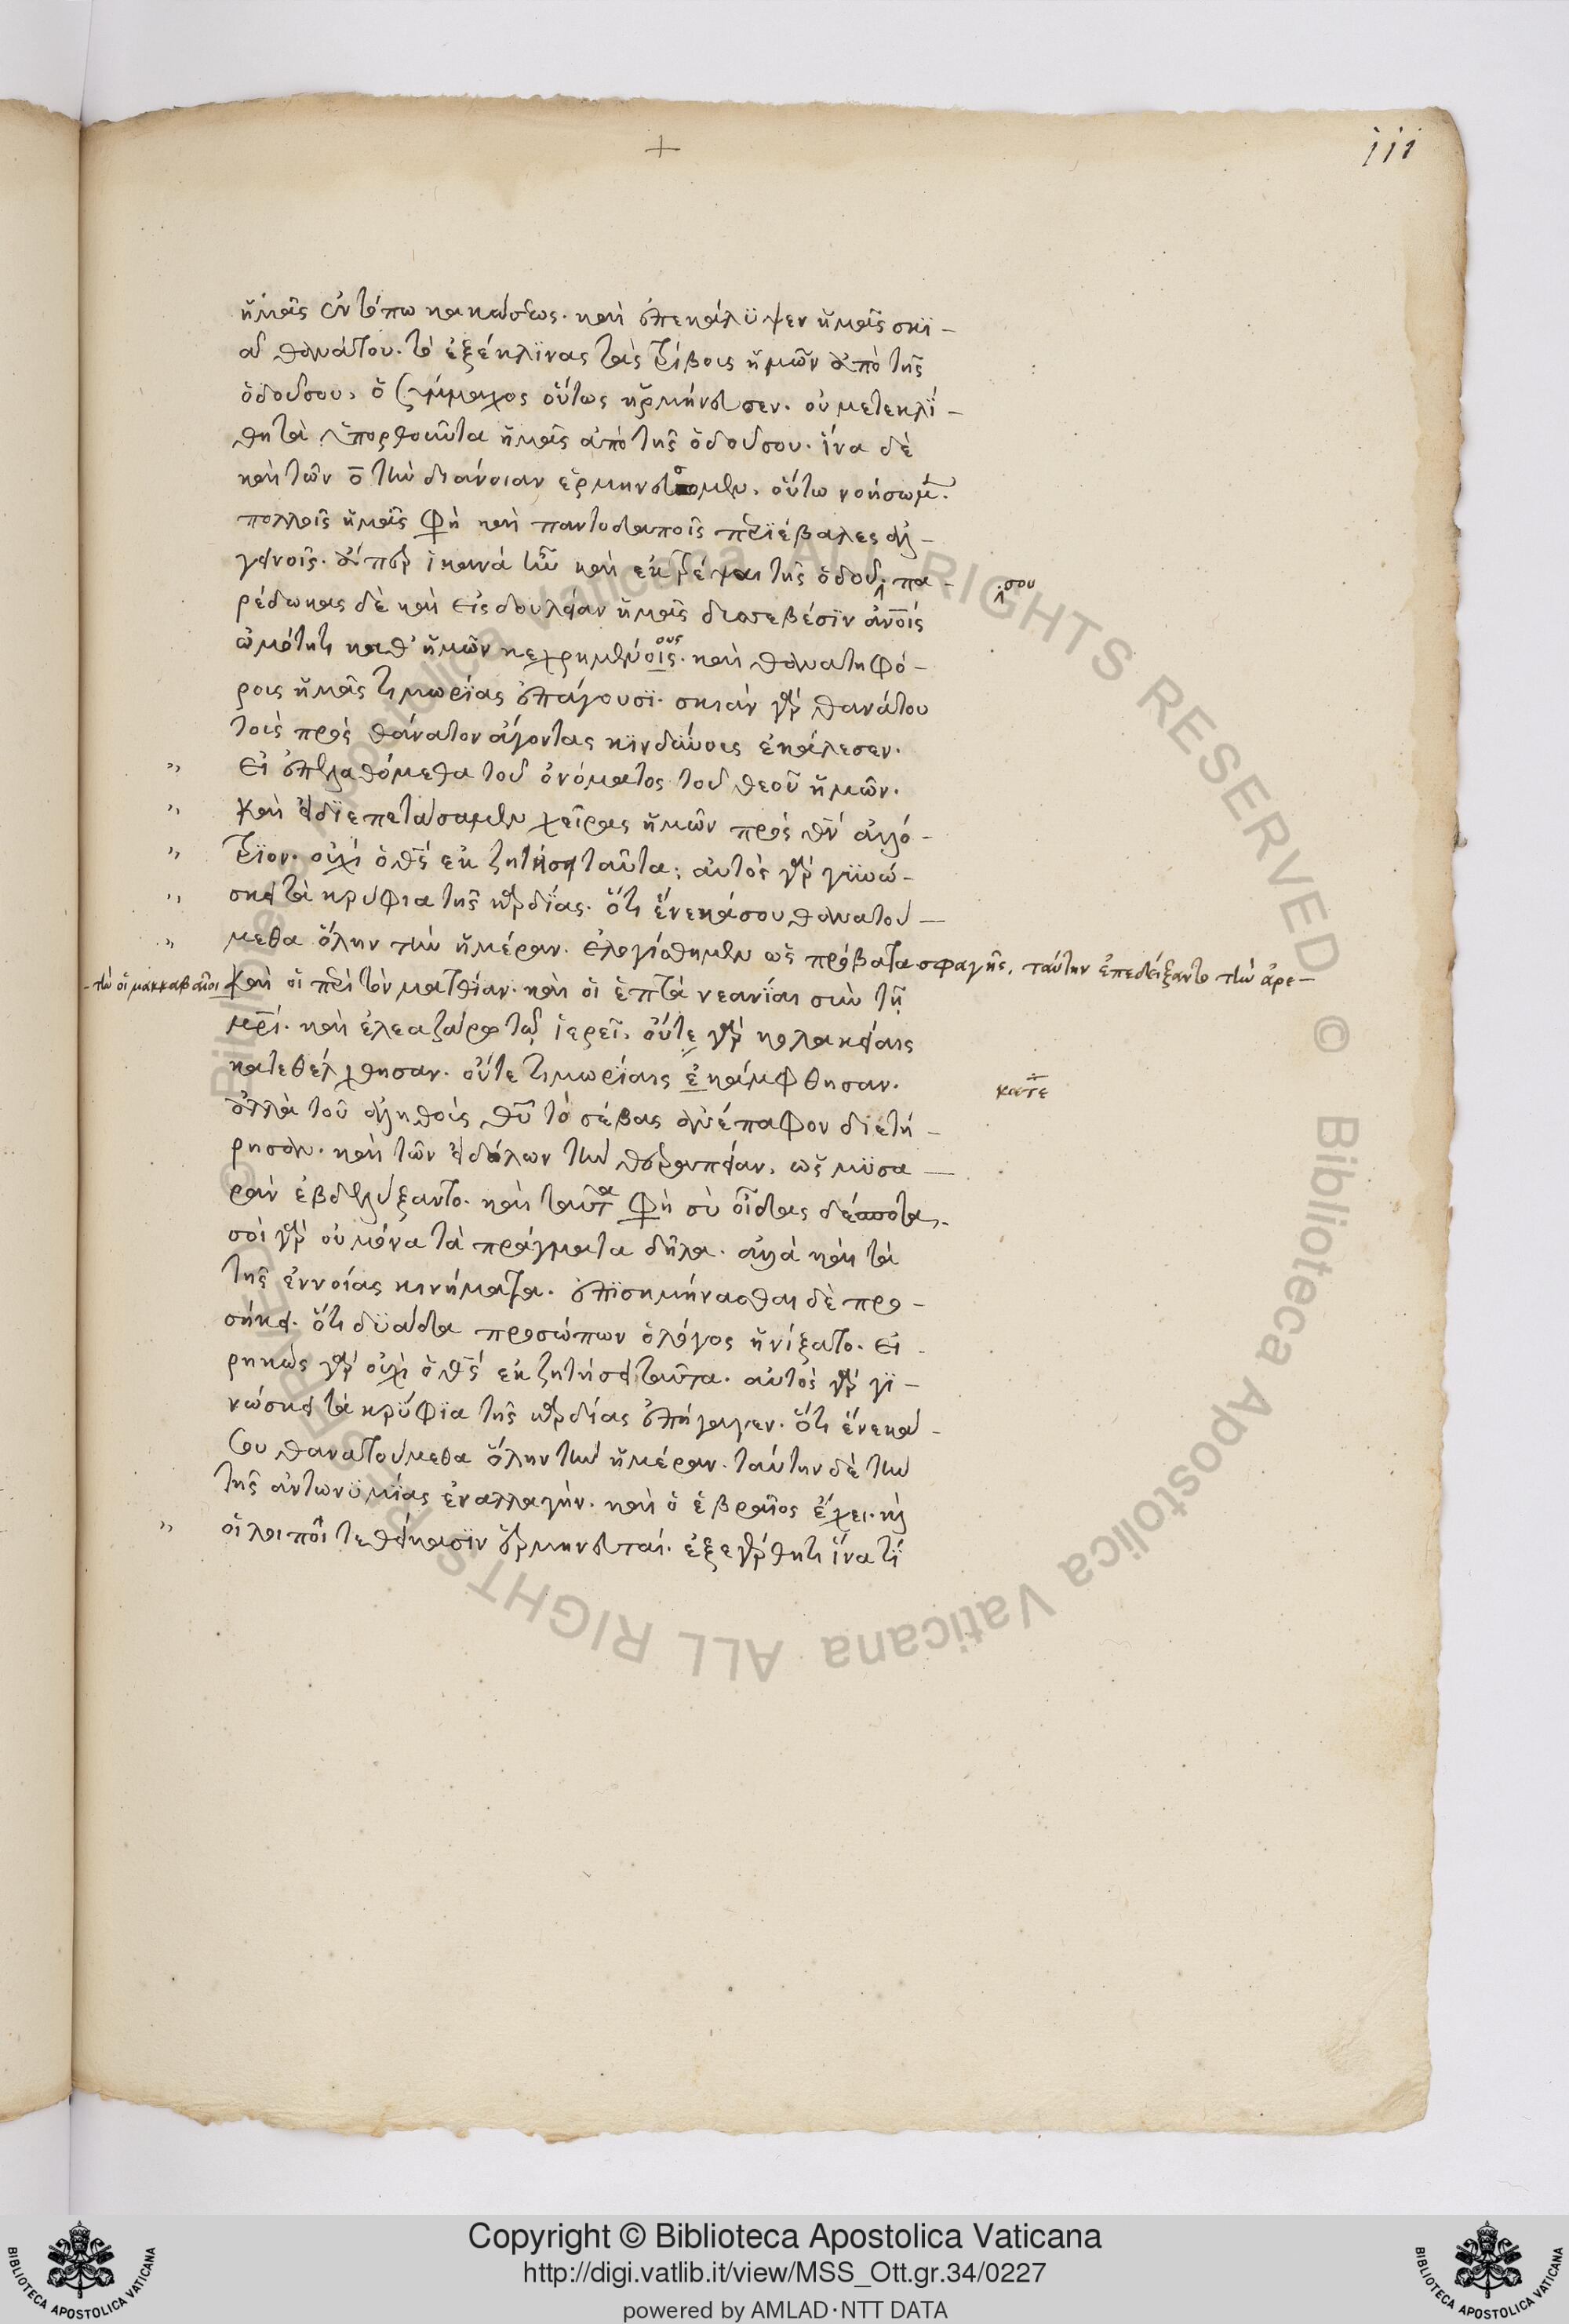 +
111
ἡμᾶς ἐν τόπω κακώσεως· καὶ ἐπεκάλυψεν ἡμᾶς σκϊ-
ὰ θανάτου. τὸ ἐξέκλϊνας τὰς τρίβους ἡμῶν ἀπὸ τῆς
ὁδοῦ σου, ὁ σύμμαχος οὕτως ἡρμήνευσεν. οὐ μετεκλί-
θη τὰ ὑπορθοῦντα ἡμᾶς ἀπὸ τῆς ὁδοῦ σου. ἵνα δὲ
καὶ τῶν ο̅ τὴν διάνοιαν ἑρμηνεύομεν, οὕτω νοήσωμεν.
πολλοῖς ἡμᾶς φη καὶ παντοδαποῖς περιέβαλες ἀλ-
γεινοῖς. ἅπερ ἱκανὰ ἦν καὶ ἐκτρέψαι τῆς ὁδοῦ, πα-
σου
ρέδωκας δὲ καὶ εἰς δουλείαν ἡμᾶς δυσσεβέσϊν ἀν̅οις
ὠμότητι καθ' ἡμῶν κεχρημένοις. καὶ θανατηφό-
ους
ροις ἡμᾶς τιμωρίαις ὑπάγουσϊ. σκιὰν γὰρ θανάτου
τοὺς πρὸς θάνατον ἄγοντας κϊνδύνους ἐκάλεσεν.
" Εἰ ἐπελαθόμεθα τοῦ ὀνόματος τοῦ θεοῦ ἡμῶν.
" καὶ εἰ διεπετάσαμεν χεῖρας ἡμῶν πρὸς θν̅ ἀλλό-
" τρϊον. οὐχὶ ὁ θς̅ ἐκζητήσει ταῦτα; αὐτὸς γὰρ γϊνώ-
" σκει τὰ κρύφια τῆς καρδίας. ὅτι ἕνεκά σου θανατού-
" μεθα ὅλην τὴν ἡμέραν. ἐλογίσθημεν ὡς πρόβατα σφαγῆς, ταύτην ἐπεδείξαντο τὴν ἀρε-
-τὴν οἱ μακκαβαῖοι καὶ οἱ περὶ τὸν ματθίαν· καὶ οἱ ἑπτὰ νεανίαι σὺν τῇ
μρ̅ι. καὶ ἐλεαζάρῳ τῷ ἱερεῖ. οὔτε γὰρ κολακείαις
κατεθέλχθησαν. οὔτε τιμωρίαις ἐκάμφθησαν.
κατε
ἀλλὰ τοῦ ἀληθοῦς θυ̅ τὸ σέβας ἀνέπαφον διετή-
ρησαν. καὶ τῶν εἰδώλων τὴν θεραπείαν, ὡς μϋσα-
ρὰν ἐβδελύξαντο. καὶ ταῦτα φη σὺ οἶδας δέσποτα.
σοὶ γὰρ οὐ μόνα τὰ πράγματα δῆλα. ἀλλὰ καὶ τὰ
τῆς ἐννοίας κινήματα. ἐπϊσημήνασθαι δὲ προ-
σήκει. ὅτι δϋάδα προσώπων ὁ λόγος ἠνίξατο. εἰ-
ρηκὼς γὰρ οὐχὶ ὁ θς̅ ἐκζητήσει ταῦτα. αὐτὸς γὰρ γϊ-
νώσκει τὰ κρύφϊα τῆς καρδίας ἐπήγαγεν. ὅτι ἕνεκά
σου θανατούμεθα ὅλην τὴν ἡμέραν. ταύτην δὲ τὴν
τῆς ἀντωνυμίας ἐναλλαγὴν. καὶ ὁ ἑβραῖος ἔχει. καὶ
" οἱ λοιποὶ τεθείκασϊν ἑρμηνευταί. ἐξεγέρθητι ἵνα τί
Copyright © Biblioteca Apostolica Vaticana
http://digi.vatlib.it/view/MSS_Ott.gr.34/0227
powered by AMLAD·NTT DATA
BIBLIOTECA APOSTOLICA VATICANA
BIBLIOTECA APOSTOLICA VATICANA
© Biblioteca Apostolica Vaticana ALL RIGHTS RESERVED © Biblioteca Apostolica Vaticana ALL RIGHTS RESERVED